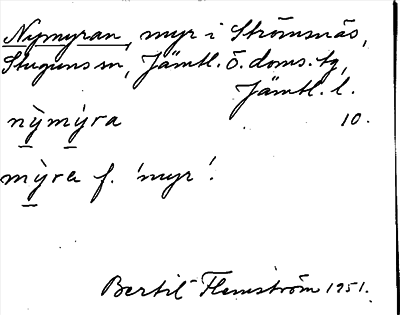 Nymyran, myr i Strömsnäs,
Stuguns sn, Jämtl. ö. doms. tg,
Jämtl. l.
nỳmỳra 10.
mỳra f. 'myr'.
Bertil Flemström 1951.